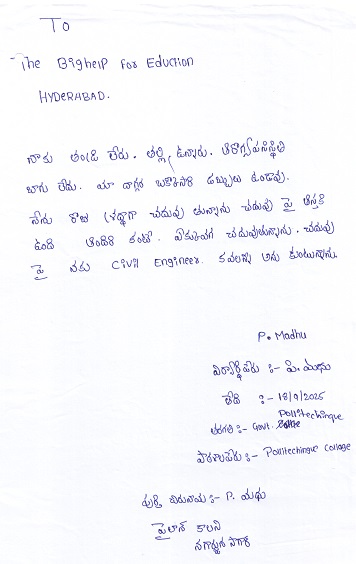 To
The Bighelp For Eduction
HYDERABAD.
నాకు తండ్రి లేరు. తల్లి ఉన్నారు. ఆరోగ్యపరిస్థితి
బాగు లేదు. మా దగ్గర ఒకొకసారి డబ్బులు ఉండవు.
నేను రోజు శ్రద్ధగా చదువు తున్నాను చదువు పై ఆసక్తి
ఉంది అందరి కంటే. ఏక్కువగ చదువుతున్నాను. చదువు
పై నకు Civil Engineer. కవలని అను కుంటున్నాను.
P. Madhu
విద్యార్థిపేరు :- పి. మధు
తేది :- 18/9/2025
తరగతి :- Govt. Pollitechinque
పాఠశాలపేరు :- Pollitechinque College
పూర్తి చిరునామ :- P. మధు
పైలాన్ కాలని
నాగార్జున సాగర్